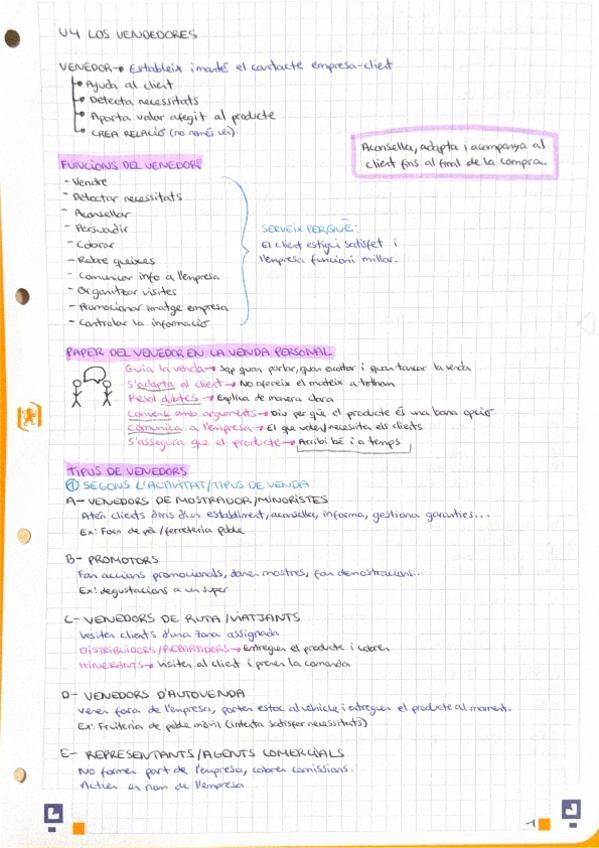 U4 LOS VENDEDORES
VENEDOR → Estableix i manté el contacte empresa-client
Ajuda al client
Detecta necessitats
Aporta valor afegit al producte
CREA RELACIÓ (no només ven)
Aconsella, adapta i acompanya al
client fins al final de la compra.
FUNCIONS DEL VENEDOR
- Vendre
- Detectar necessitats
- Aconsellar
- Persuadir
- Cobrar
- Rebre queixes
- Comunicar info a l'empresa
- Organitzar visites
- Promocionar imatge empresa
- Controlar la informació
SERVEIX PERQUÈ:
El client estigui satisfet i
l'empresa funcioni millor.
PAPER DEL VENEDOR EN LA VENDA PERSONAL
Guia la venda → Sap quan parlar, quan escoltar i quan tancar la venda
S'adapta al client → No ofereix el mateix a tothom
Resol dubtes → Explica de manera clara
Convenç amb arguments → Diu per què el producte és una bona opció
Comunica a l'empresa → El que volen/necessiten els clients
S'assegura que el producte → Arribi bé i a temps
TIPUS DE VENEDORS
1 SEGONS L'ACTIVITAT/TIPUS DE VENDA
A- VENEDORS DE MOSTRADOR/MINORISTES
Atén clients dins d'un establiment, aconsella, informa, gestiona garanties...
Ex: Forn de pa / ferreteria poble
B- PROMOTORS
Fan accions promocionals, donen mostres, fan demostracions...
Ex: degustacions a un super
C- VENEDORS DE RUTA / VIATJANTS
Visiten clients d'una zona assignada
DISTRIBUÏDORS/REPARTIDORS → Entreguen el producte i cobren
ITINERANTS → Visiten al client i prenen la comanda
D- VENEDORS D'AUTOVENDA
Venen fora de l'empresa, porten estoc al vehicle i entreguen el producte al moment.
Ex: Fruiteria de poble mòbil (intenta satisfer necessitats)
E- REPRESENTANTS/AGENTS COMERCIALS
No formen part de l'empresa, cobren comissions.
Actuen en nom de l'empresa
1